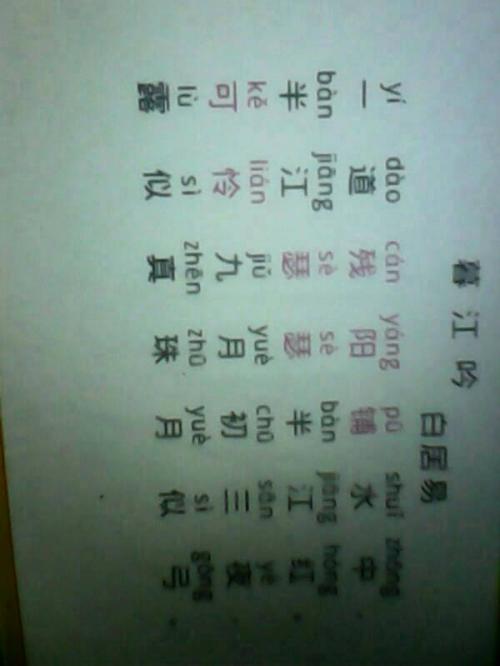 暮江吟
白居易
yí dào cán yáng pū shuǐ zhōng
一道残阳铺水中
bàn jiāng sè sè bàn jiāng hóng
半江瑟瑟半江红
kě lián jiǔ yuè chū sān yè
可怜九月初三夜
lù sì zhēn zhū yuè sì gōng
露似真珠月似弓